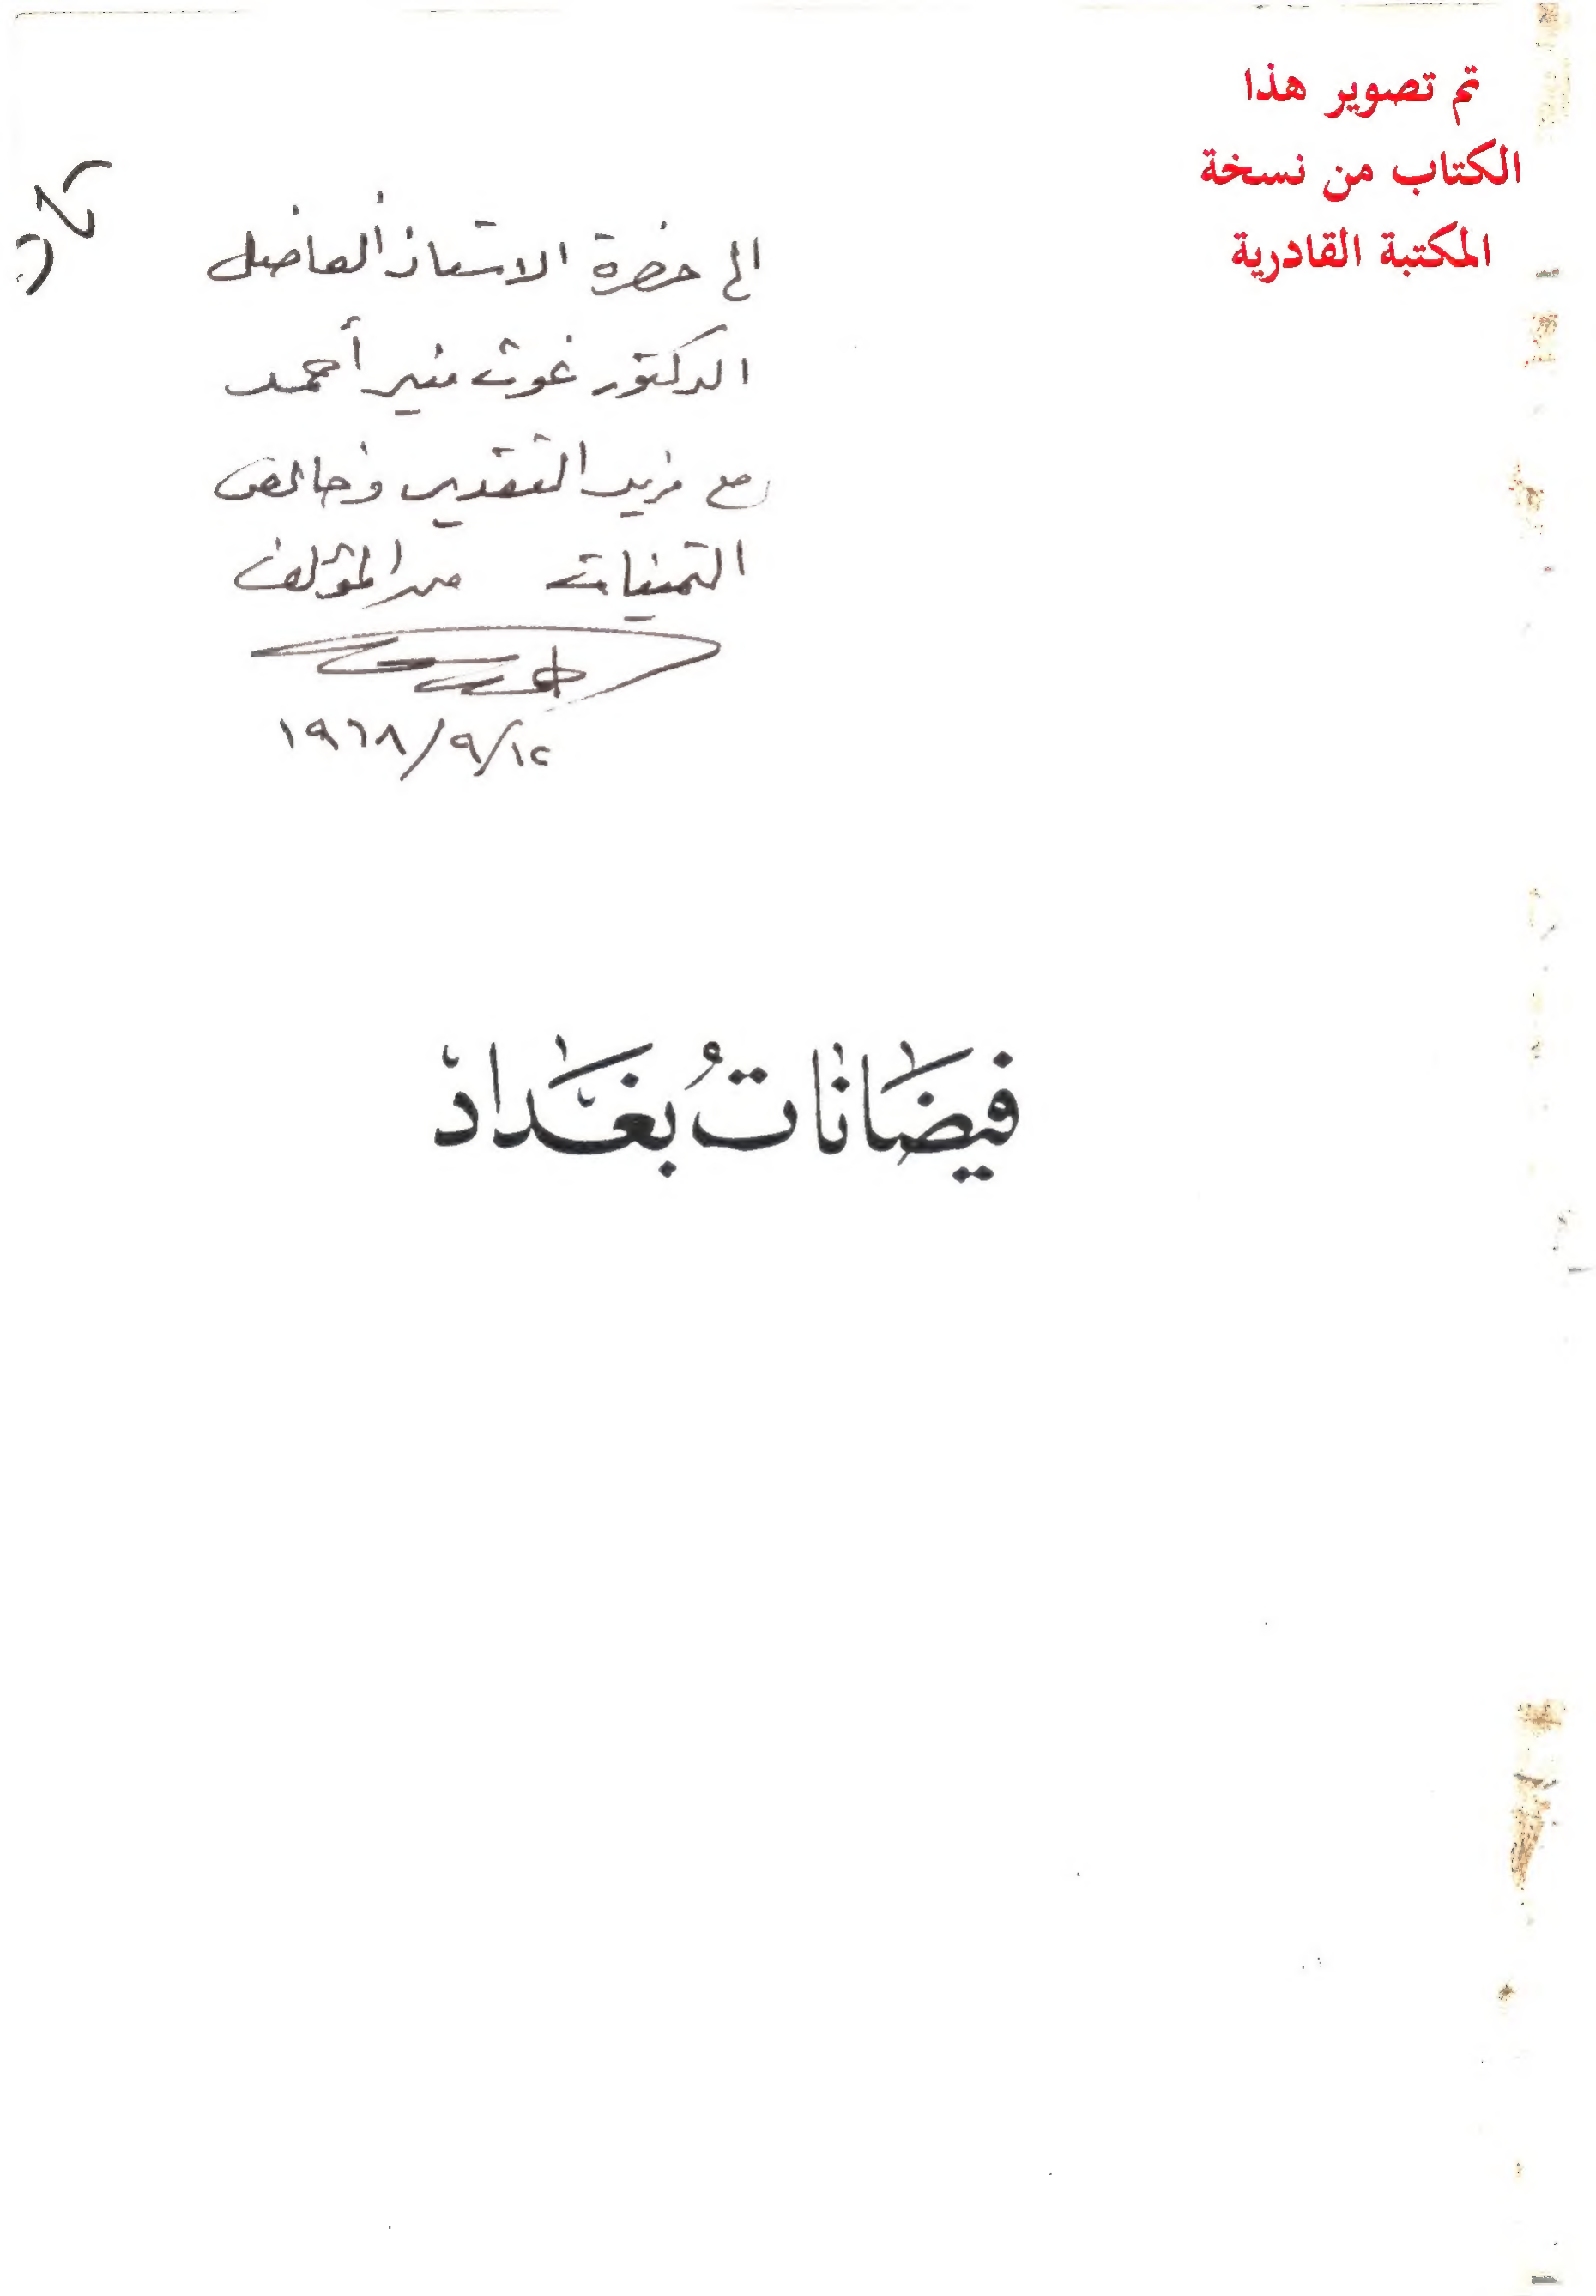 تم تصوير هذا
الكتاب من نسخة
المكتبة القادرية
الى حضرة الاستاذ الفاضل
الدكتور غوث منير أحمد
مع مزيد التقدير وخالص
التمنيات من المؤلف
١٩٦٨/٩/١٢
فيضَانَاتُ بغَداد